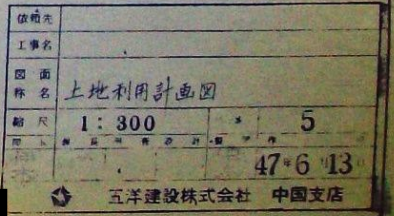 依頼先
工事名
図面
称名 土地利用計画図
縮尺 1:300 5
47年6月13日
五洋建設株式会社 中国支店